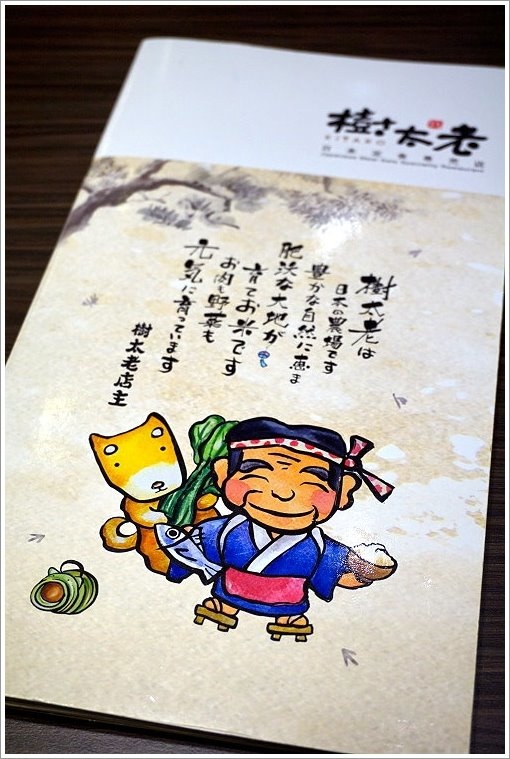 樹太老
KITARO
日本定食專売店
樹太老は
日本の農場です
豊かな自然に恵ま
肥沃な大地が
育てお米です
お肉も野菜も
元気に育っています
樹太老店主